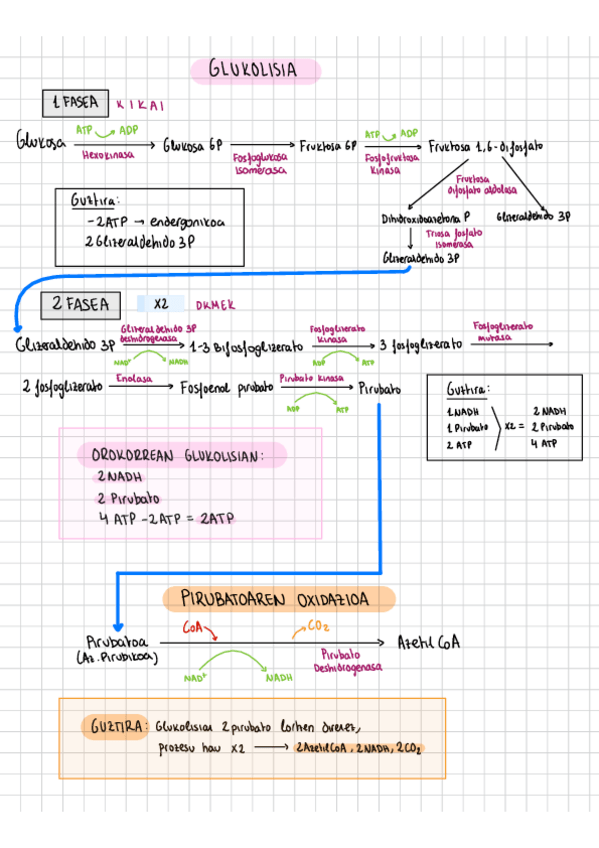 GLUKOLISIA
1 FASEA KIKAI
ATP ADP
ATP ADP
Glukosa Glukosa 6P Fruktosa 6P Fruktosa 1,6-difosfato
Hexokinasa
Fosfoglukosa
Isomerasa
Fosfofruktosa
Kinasa
Fruktosa
difosfato aldolasa
Guztira:
-2ATP → endergonikoa
2 Glizeraldehido 3P
Dihidroxiboazetona P Glizeraldehido 3P
Triosa fosfato
Isomerasa
Glizeraldehido 3P
2 FASEA X2 DKMEK
Glizeraldehido 3P
deshidrogenasa
Fosfoglizerato
kinasa
Fosfoglizerato
mutasa
Glizeraldehido 3P 1-3 Bifosfoglizerato 3 fosfoglizerato
NAD⁺ NADH
ADP ATP
2 fosfoglizerato Enolasa Fosfoenol pirubato Pirubato kinasa Pirubato
ADP ATP
Guztira:
1 NADH 2 NADH
1 Pirubato X2 = 2 Pirubato
2 ATP 4 ATP
OROKORREAN GLUKOLISIAN:
2 NADH
2 Pirubato
4 ATP - 2 ATP = 2ATP
PIRUBATOAREN OXIDAZIOA
CoA CO₂
Pirubatoa Azetil CoA
(Az. Pirubikoa)
Pirubato
Deshidrogenasa
NAD⁺ NADH
GUZTIRA: Glukolisian 2 pirubato lortzen direnez,
prozesu hau X2 → 2 Azetil CoA, 2 NADH, 2 CO₂